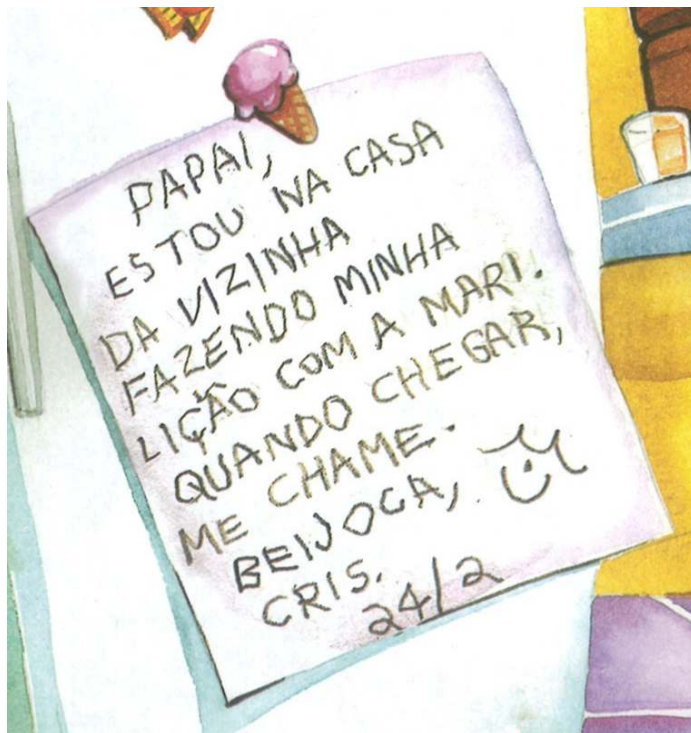 PAPAI,
ESTOU NA CASA
DA VIZINHA
FAZENDO MINHA
LIÇÃO COM A MARI.
QUANDO CHEGAR,
ME CHAME.
BEIJOCA,
CRIS.
24/2